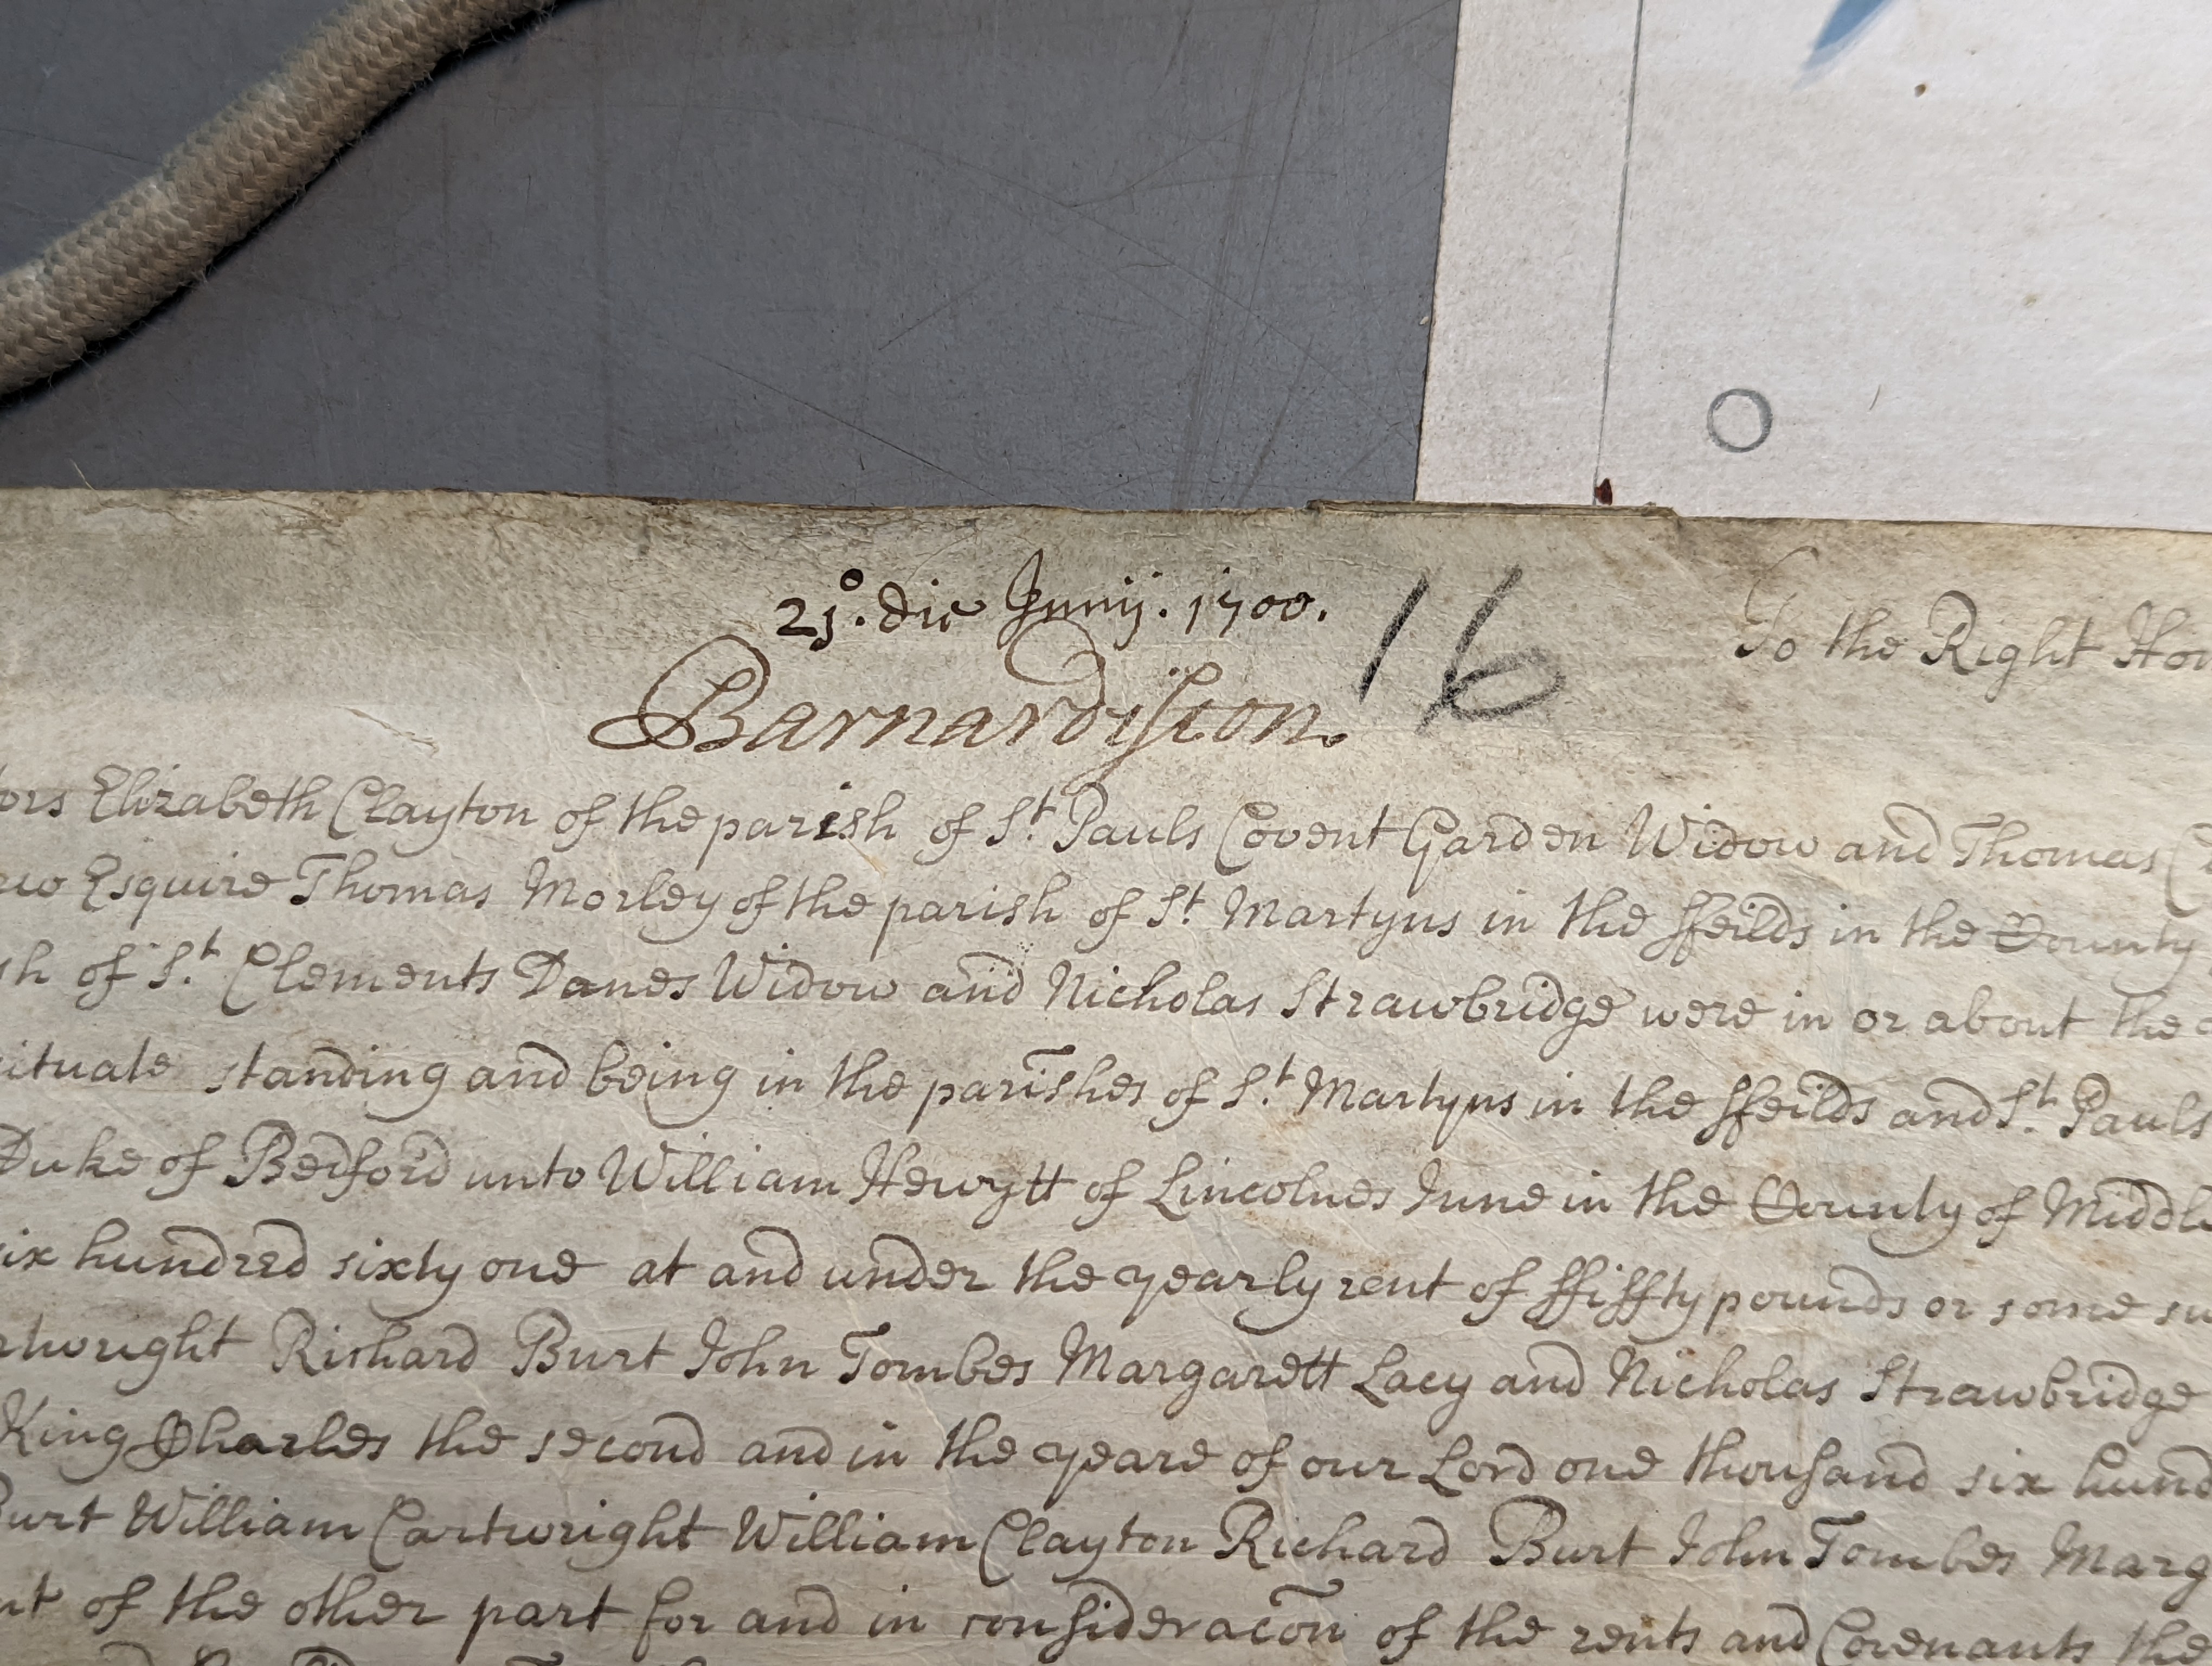 21o. die Junij. 1700.
16
To the Right Hon
Barnardiston.
ors Elizabeth Clayton of the parish of St. Pauls Covent Garden Widow and Thomas C
ew Esquire Thomas Morley of the parish of St. Martyns in the ffeilds in the County
sh of St. Clements Danes Widow and Nicholas Strawbridge were in or about the
situate standing and being in the parishes of St. Martyns in the ffeilds and St. Pauls
Duke of Bedford unto William Hewytt of Lincolnes Inne in the County of Middle
six hundred sixty one at and under the yearly rent of ffiffty pounds or some su
rtwright Richard Burt John Tombes Margarett Lacy and Nicholas Strawbridge
King Charles the second and in the yeare of our Lord one thousand six hund
Burt William Cartwright William Clayton Richard Burt John Tombes Marg
nt of the other part for and in consideracõn of the rents and Covenants the